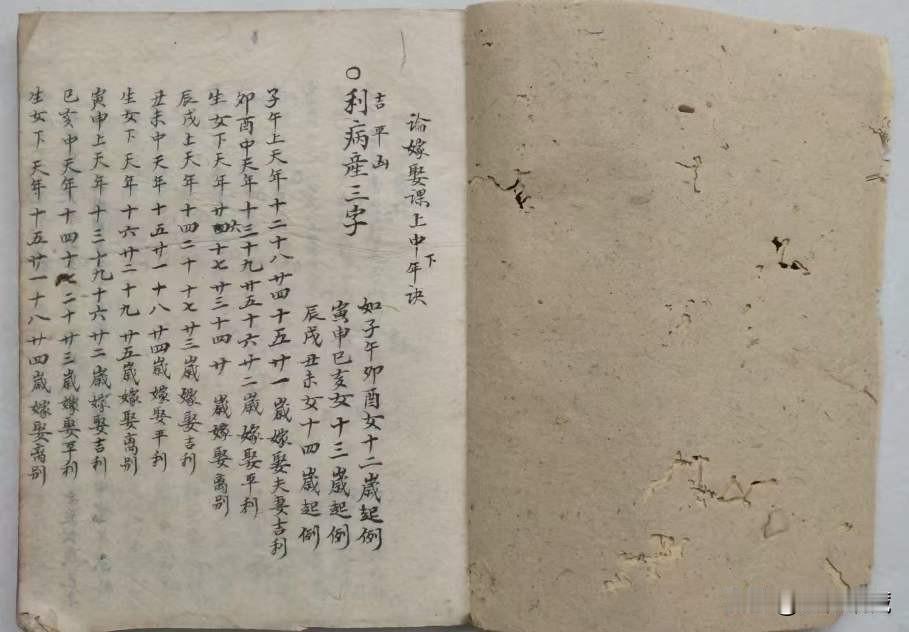 論嫁娶課上中下年诀
吉平凶
○利病産三字
如子午卯酉女十二歲起例
寅申巳亥女十三歲起例
辰戌丑未女十四歲起例
子午上天年十二十八廿四十五廿一歲嫁娶夫妻吉利
卯酉中天年十三十九廿五十六廿二歲嫁娶平利
生女下天年廿十七廿三十四廿歲嫁娶离别
辰戌上天年十四二十十七廿三歲嫁娶吉利
丑未中天年十五廿一十八廿四歲嫁娶平利
生女下天年十六廿二十九廿五歲嫁娶离别
寅申上天年十三十九十六廿二歲嫁娶吉利
巳亥中天年十四十二十廿三歲嫁娶平利
生女下天年十五廿一十八廿四歲嫁娶离别